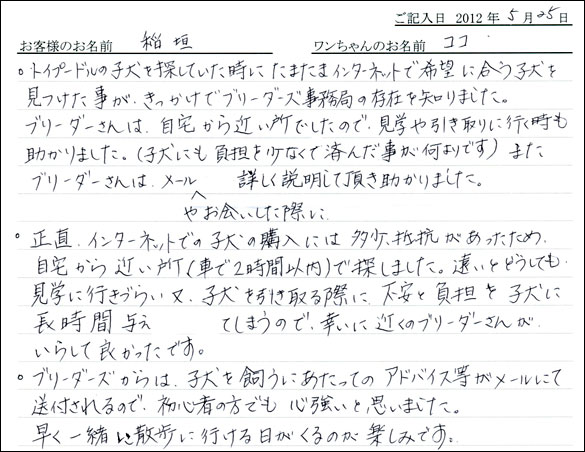 ご記入日 2012年 5月25日
お客様のお名前 稲垣 ワンちゃんのお名前 ココ
。トイプードルの子犬を探していた時にたまたまインターネットで希望に合う子犬を
見つけた事が、きっかけでブリーダーズ事務局の存在を知りました。
ブリーダーさんは、自宅から近い所でしたので、見学や引き取りに行く時も
助かりました。(子犬にも負担を少なくて済んだ事が何よりです) また
ブリーダーさんは、メール 詳しく説明して頂き助かりました。
やお会いした際に
。正直、インターネットでの子犬の購入には多少、抵抗があったため、
自宅から近い所(車で2時間以内)で探しました。遠いとどうしても、
見学に行きづらい又、子犬を引き取る際に、不安と負担を子犬に
長時間与え てしまうので、幸いに近くのブリーダーさんが、
いらして良かったです。
。ブリーダーズからは、子犬を飼うにあたってのアドバイス等がメールにて
送付されるので、初心者の方でも心強いと思いました。
早く一緒に散歩に行ける日がくるのが楽しみです。